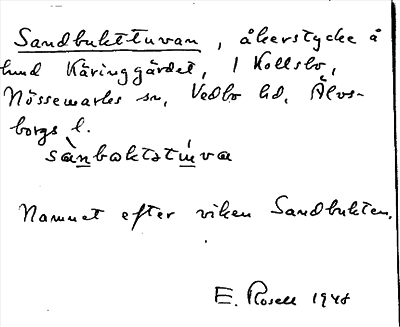 Sandbukttuvan, åkerstycke å
hmd Käringgärdet, 1 Kollsbo,
Nössemarks sn, Vedbo hd, Älvs-
borgs l.
sànbɷktətúva
Namnet efter viken Sandbukten.
E. Rosell 1948